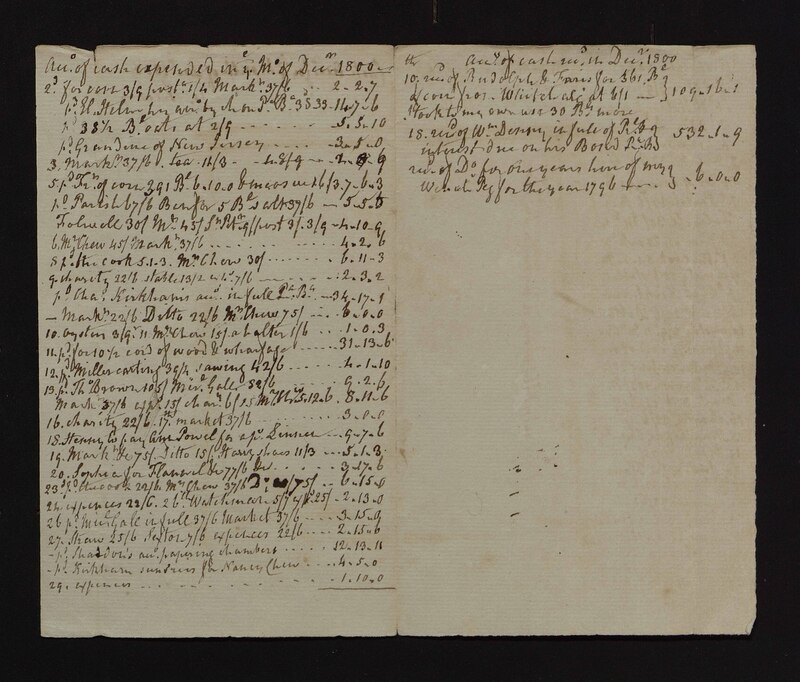 Acct. of cash expended in ye Mo. of Decr. 1800
2d. for corn 3/9 post. 1/4 Markt. 37/6 - - - 2-2-7
pd. 38½ B. oats at 2/9 - - - - 5-5-10
pd. Grandine of New Jersey - - - 3-5-0
3. Markt. 37/6. Tea 11/3
pd. Parish 67/6 Bar for 5 Bs. salt 37/6 - - 5-5-0
Folwell 30/ Mrs. 45/ post 3/.3/9 - 4-10-9
6. Mrs. Chew 45/ Markt. 37/6 - - - - 4-2-6
8 pd. the cook 5.1.3. Mrs. Chew 30/ - - - - 6-11-3
9. charity 22/6 stable 13/2 7/6 - - - - 2-3-2
pd. Chas. Kirkhams acct. in full - - 34-17-1
- Markt. 22/6 Ditto 22/6 Mrs. Chew 75/ - - 6-0-0
10. oysters 3/9. 11 Mrs. Chew 15/ a halter 1/6 - - 1-0-3
11. pd. for 10½ cord of wood & wharfage - - - 31-13-6
12. pd. Miller carting 39/4 sawing 42/6 - - - 4-1-10
13. pd. Ths. Brown 105/ Gale 52/6 - - - 9-2-6
Markt. 37/6 exps. 15/ 5.12.6 - 8-11-6
16. charity 22/6. 17th. market 37/6 - - - - 3-0-0
18. Henry to pay Ann Powel for a ps. Linnen - - 9-7-6
19. Markt. &c 75/. Ditto 15/ Harry shoes 11/3 - - 5-1-3
20. Sophia for Flannel &c 77/6 - - - - 3-17-6
23d. pd. the cook 22/6. Mrs. Chew 37/6 Do. 75/ - - 6-15-0
24 expences 22/6. 26th. Watchman 5/ 25/ - 2-13-0
26 pd. Gale in full 37/6 Market 37/6 - - - 3-15-0
27. Straw 25/6 Sexton 7/6 expences 22/6 - - - 2-15-6
- pd. acct. papering chambers - - - - 12-13-11
- pd. Kirkham sundries for Nancy Chew - - - 4-5-0
29. expences - - - - 1-10-0
Acct. of cash recd. in Decr. 1800
10th. recd. of Rudolph & Faris for 361 Bs.
of corn from Whitehall at 6/1 - - } 109-16-1
took to my own use 30 Bs. more
18. recd. of Wm. Denny in full of
interest due on his Bond 532-1-9
recd. of Do. for one years hire of my
Wench Peg for the year 1796 - - - 6-0-0